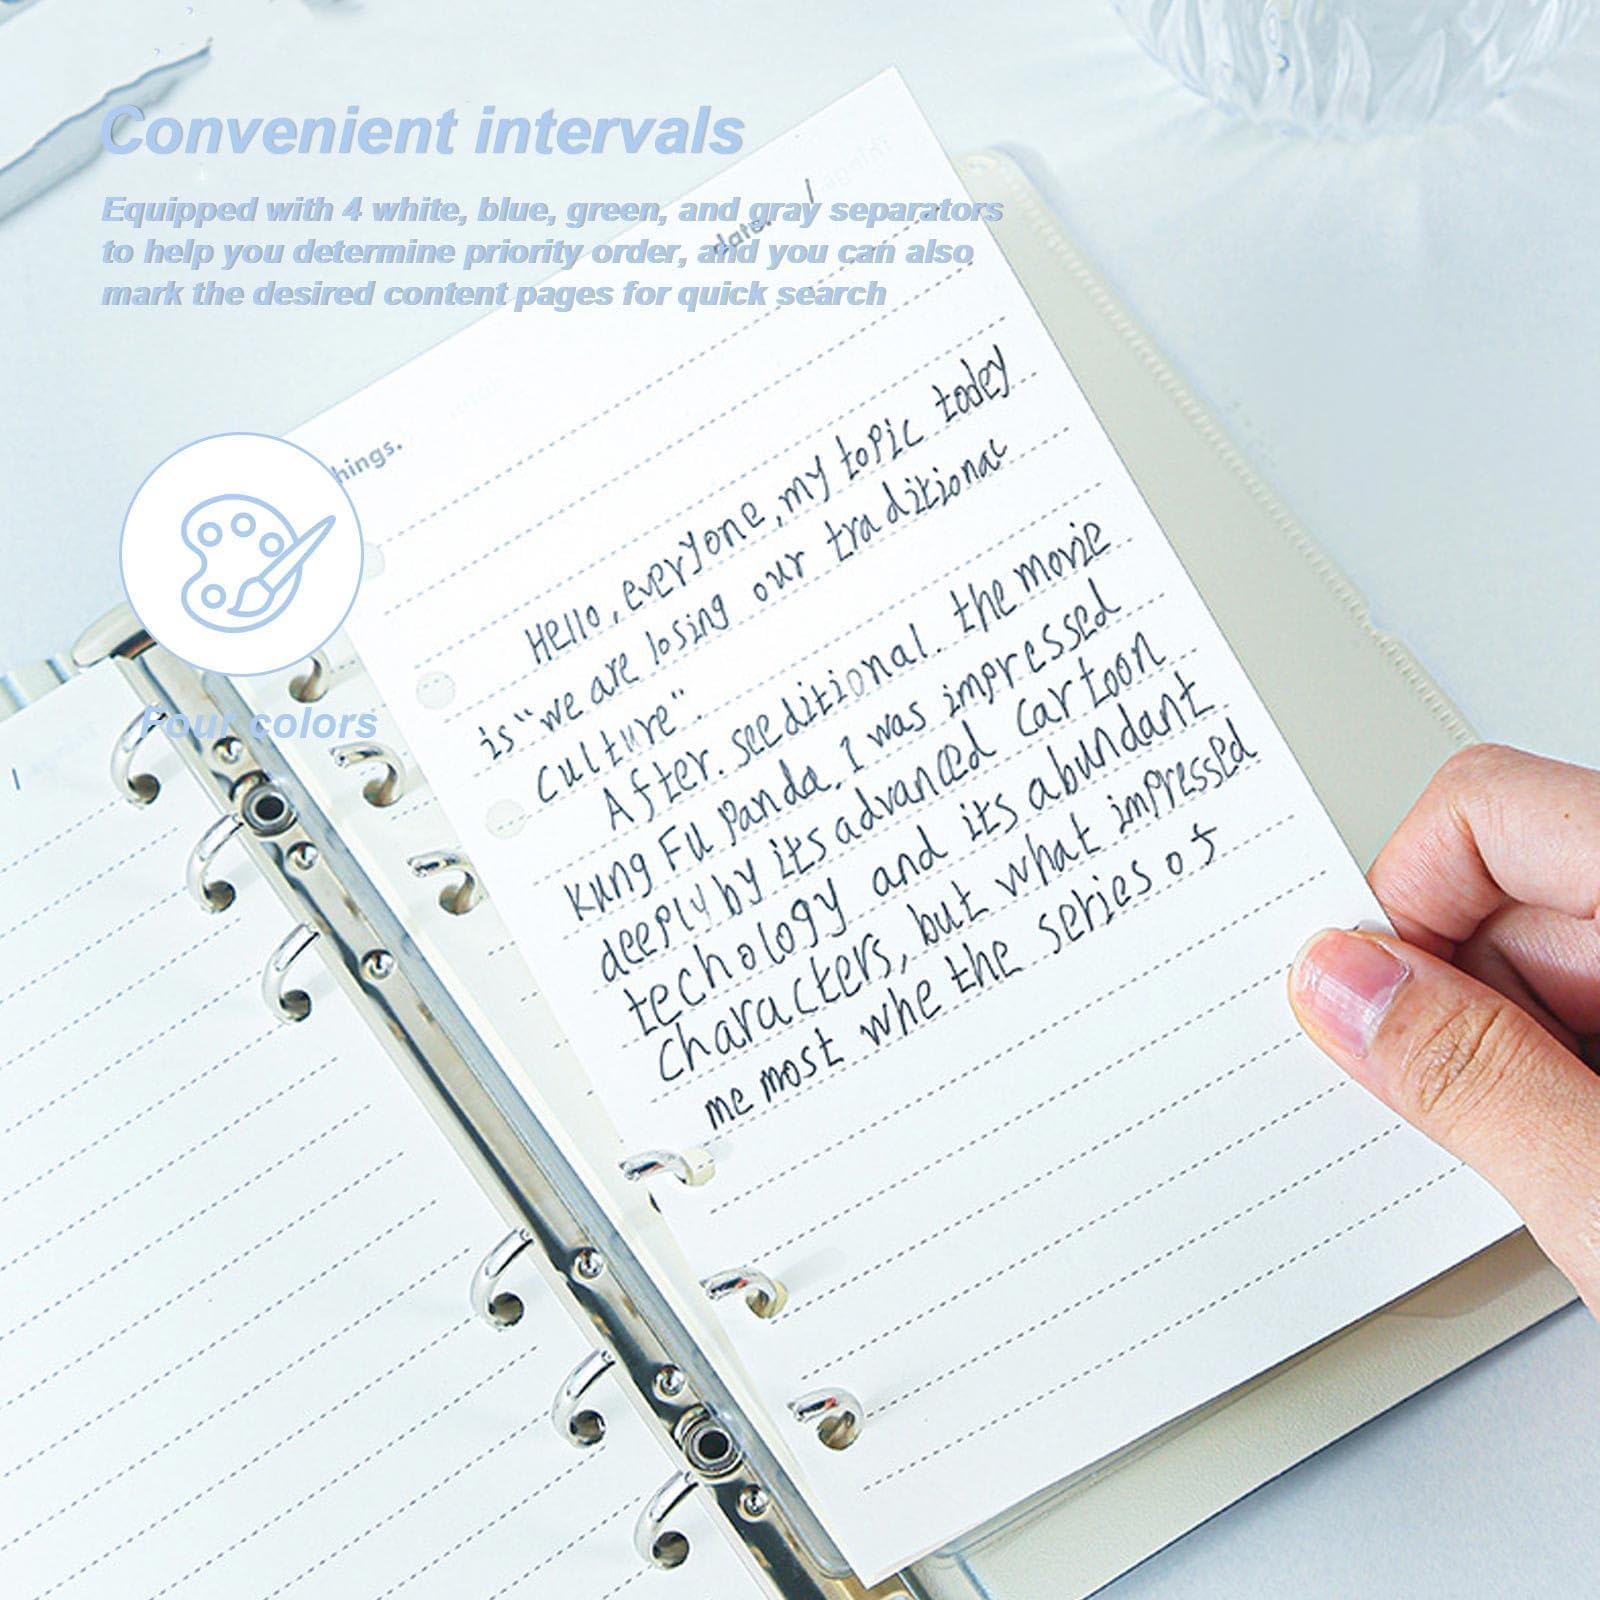 Convenient intervals
Equipped with 4 white, blue, green, and gray separators
to help you determine priority order, and you can also
mark the desired content pages for quick search
date. /
hings.
Four colors
Hello, everyone, my topic today
is "we are losing our traditional
culture".
After. see ditional. the movie
Kung Fu Panda, I was impressed
deeply by its advanced cartoon
technology and its abundant
characters, but what impressed
me most whe the series of